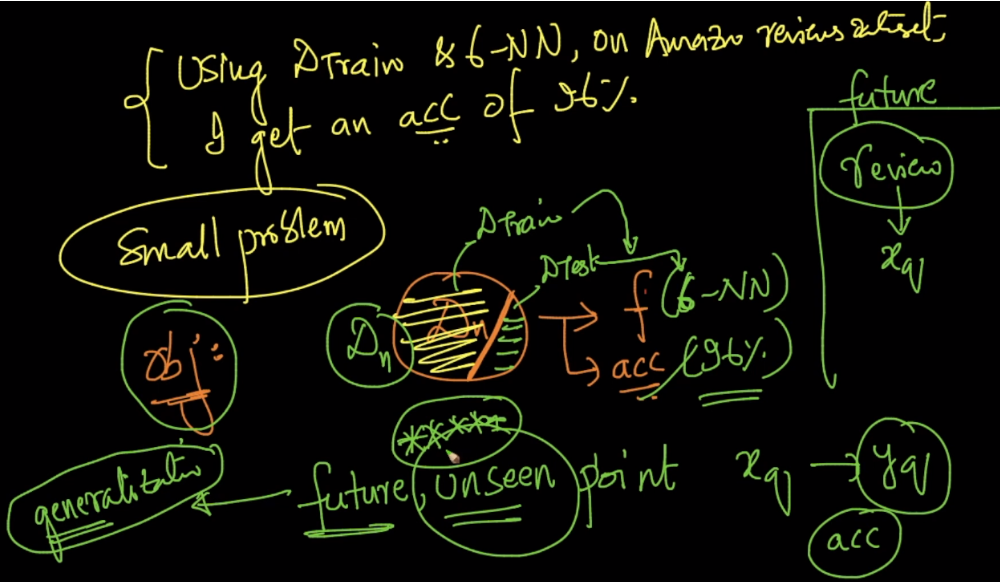 Using DTrain & 6-NN, on Amazon reviews dataset,
I get an acc of 96%.
future
review
xq
Small problem
DTrain
DTest
Dn
Dn
f (6-NN)
acc (96%)
obj:
*****
generalization
future, unseen point xq → yq
acc